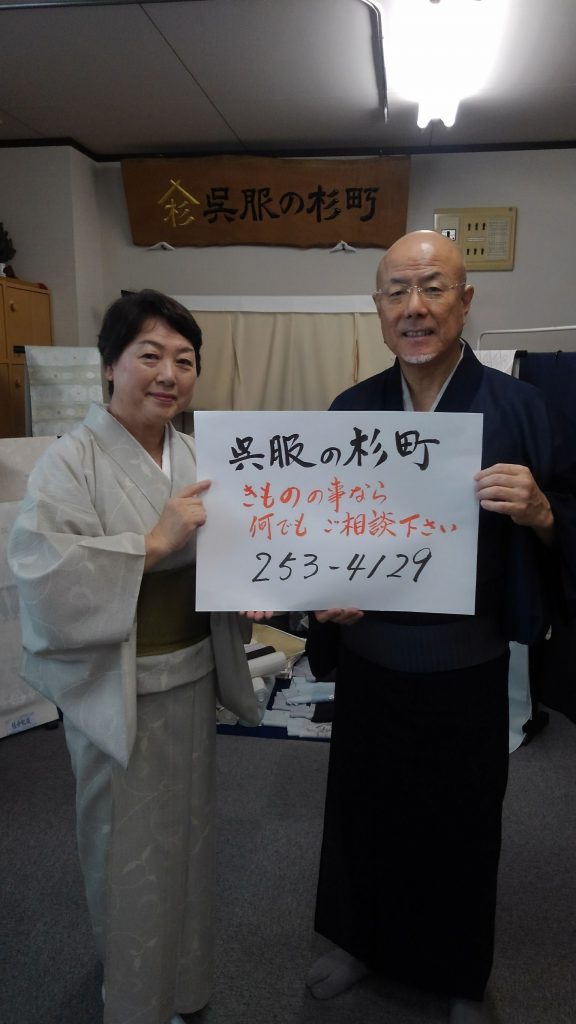 杉 呉服の杉町
呉服の杉町
きものの事なら
何でもご相談下さい
253-4129